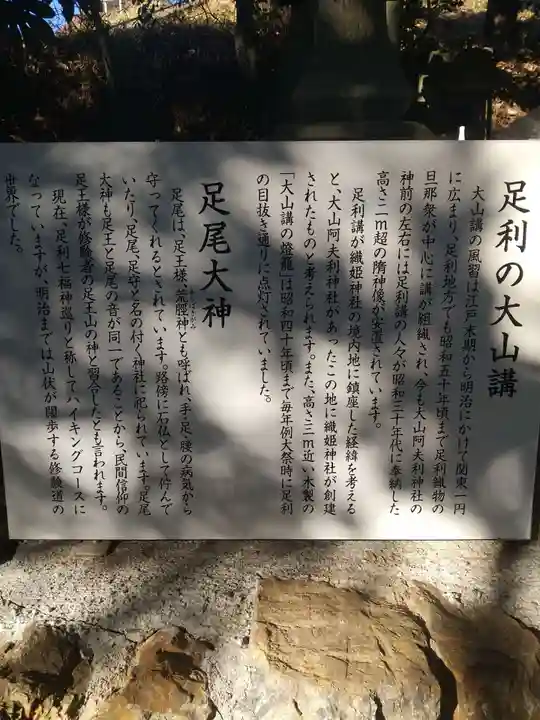 足利の大山講
大山講の風習は江戸末期から明治にかけて関東一円
に広まり、足利地方でも昭和五十年頃まで足利織物の
旦那衆が中心に講が組織され、今も大山阿夫利神社の
神前の左右には足利講の人々が昭和三十年代に奉納した
高さ二m超の隋神像が安置されています。
足利講が織姫神社の境内地に鎮座した経緯を考える
と、大山阿夫利神社があったこの地に織姫神社が創建
されたものと考えられます。また、高さ三m近い木製の
「大山講の燈籠」は昭和四十年頃まで毎年例大祭時に足利
の目抜き通りに点灯されていました。
足尾大神
足尾は、足王様、荒脛神とも呼ばれ、手・足・腰の病気から
守ってくれるとされています。路傍に石仏として佇んで
いたり、足尾、足守と名の付く神社に祀られています。足尾
大神も足王と足尾の音が同一であることから、民間信仰の
足王様が修験者の足王山の神と習合したとも言われます。
現在、「足利七福神巡り」と称してハイキングコースに
なっていますが、明治までは山伏が闊歩する修験道の
世界でした。